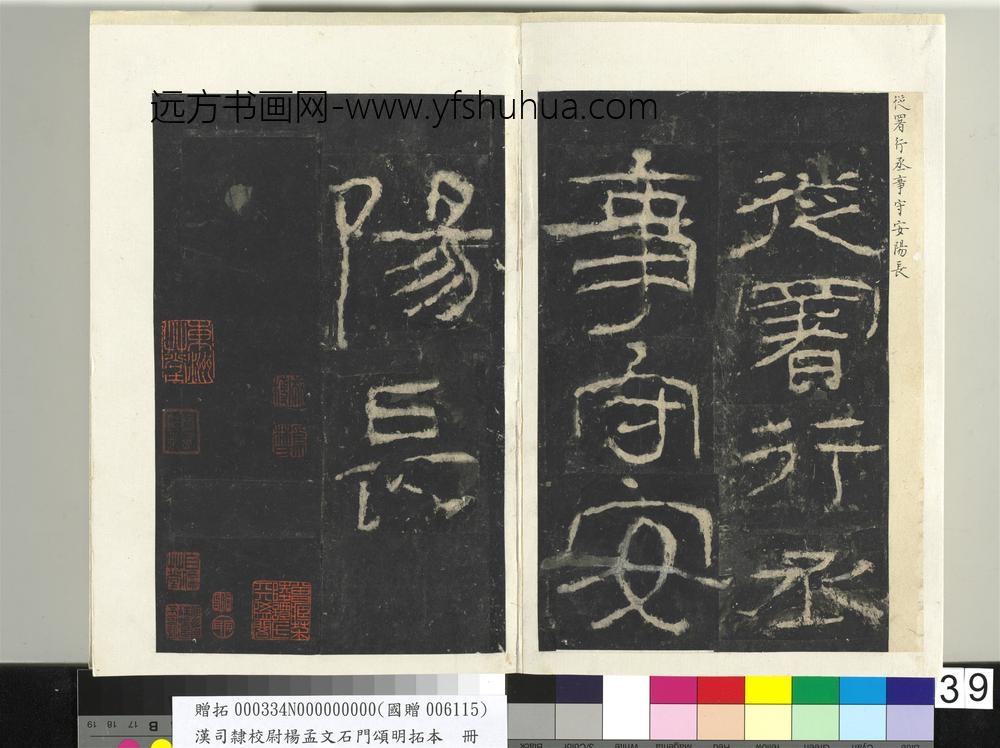 远方书画网-www.yfshuhua.com
從署行丞事守安陽長
從署行丞
事守安
陽長
39
贈拓 000334N000000000(國贈 006115)
漢司隸校尉楊孟文石門頌明拓本 冊
19 18 17 B
Black
3/Color
White
Magenta
Red
Yellow
Green
Cyan
Blue